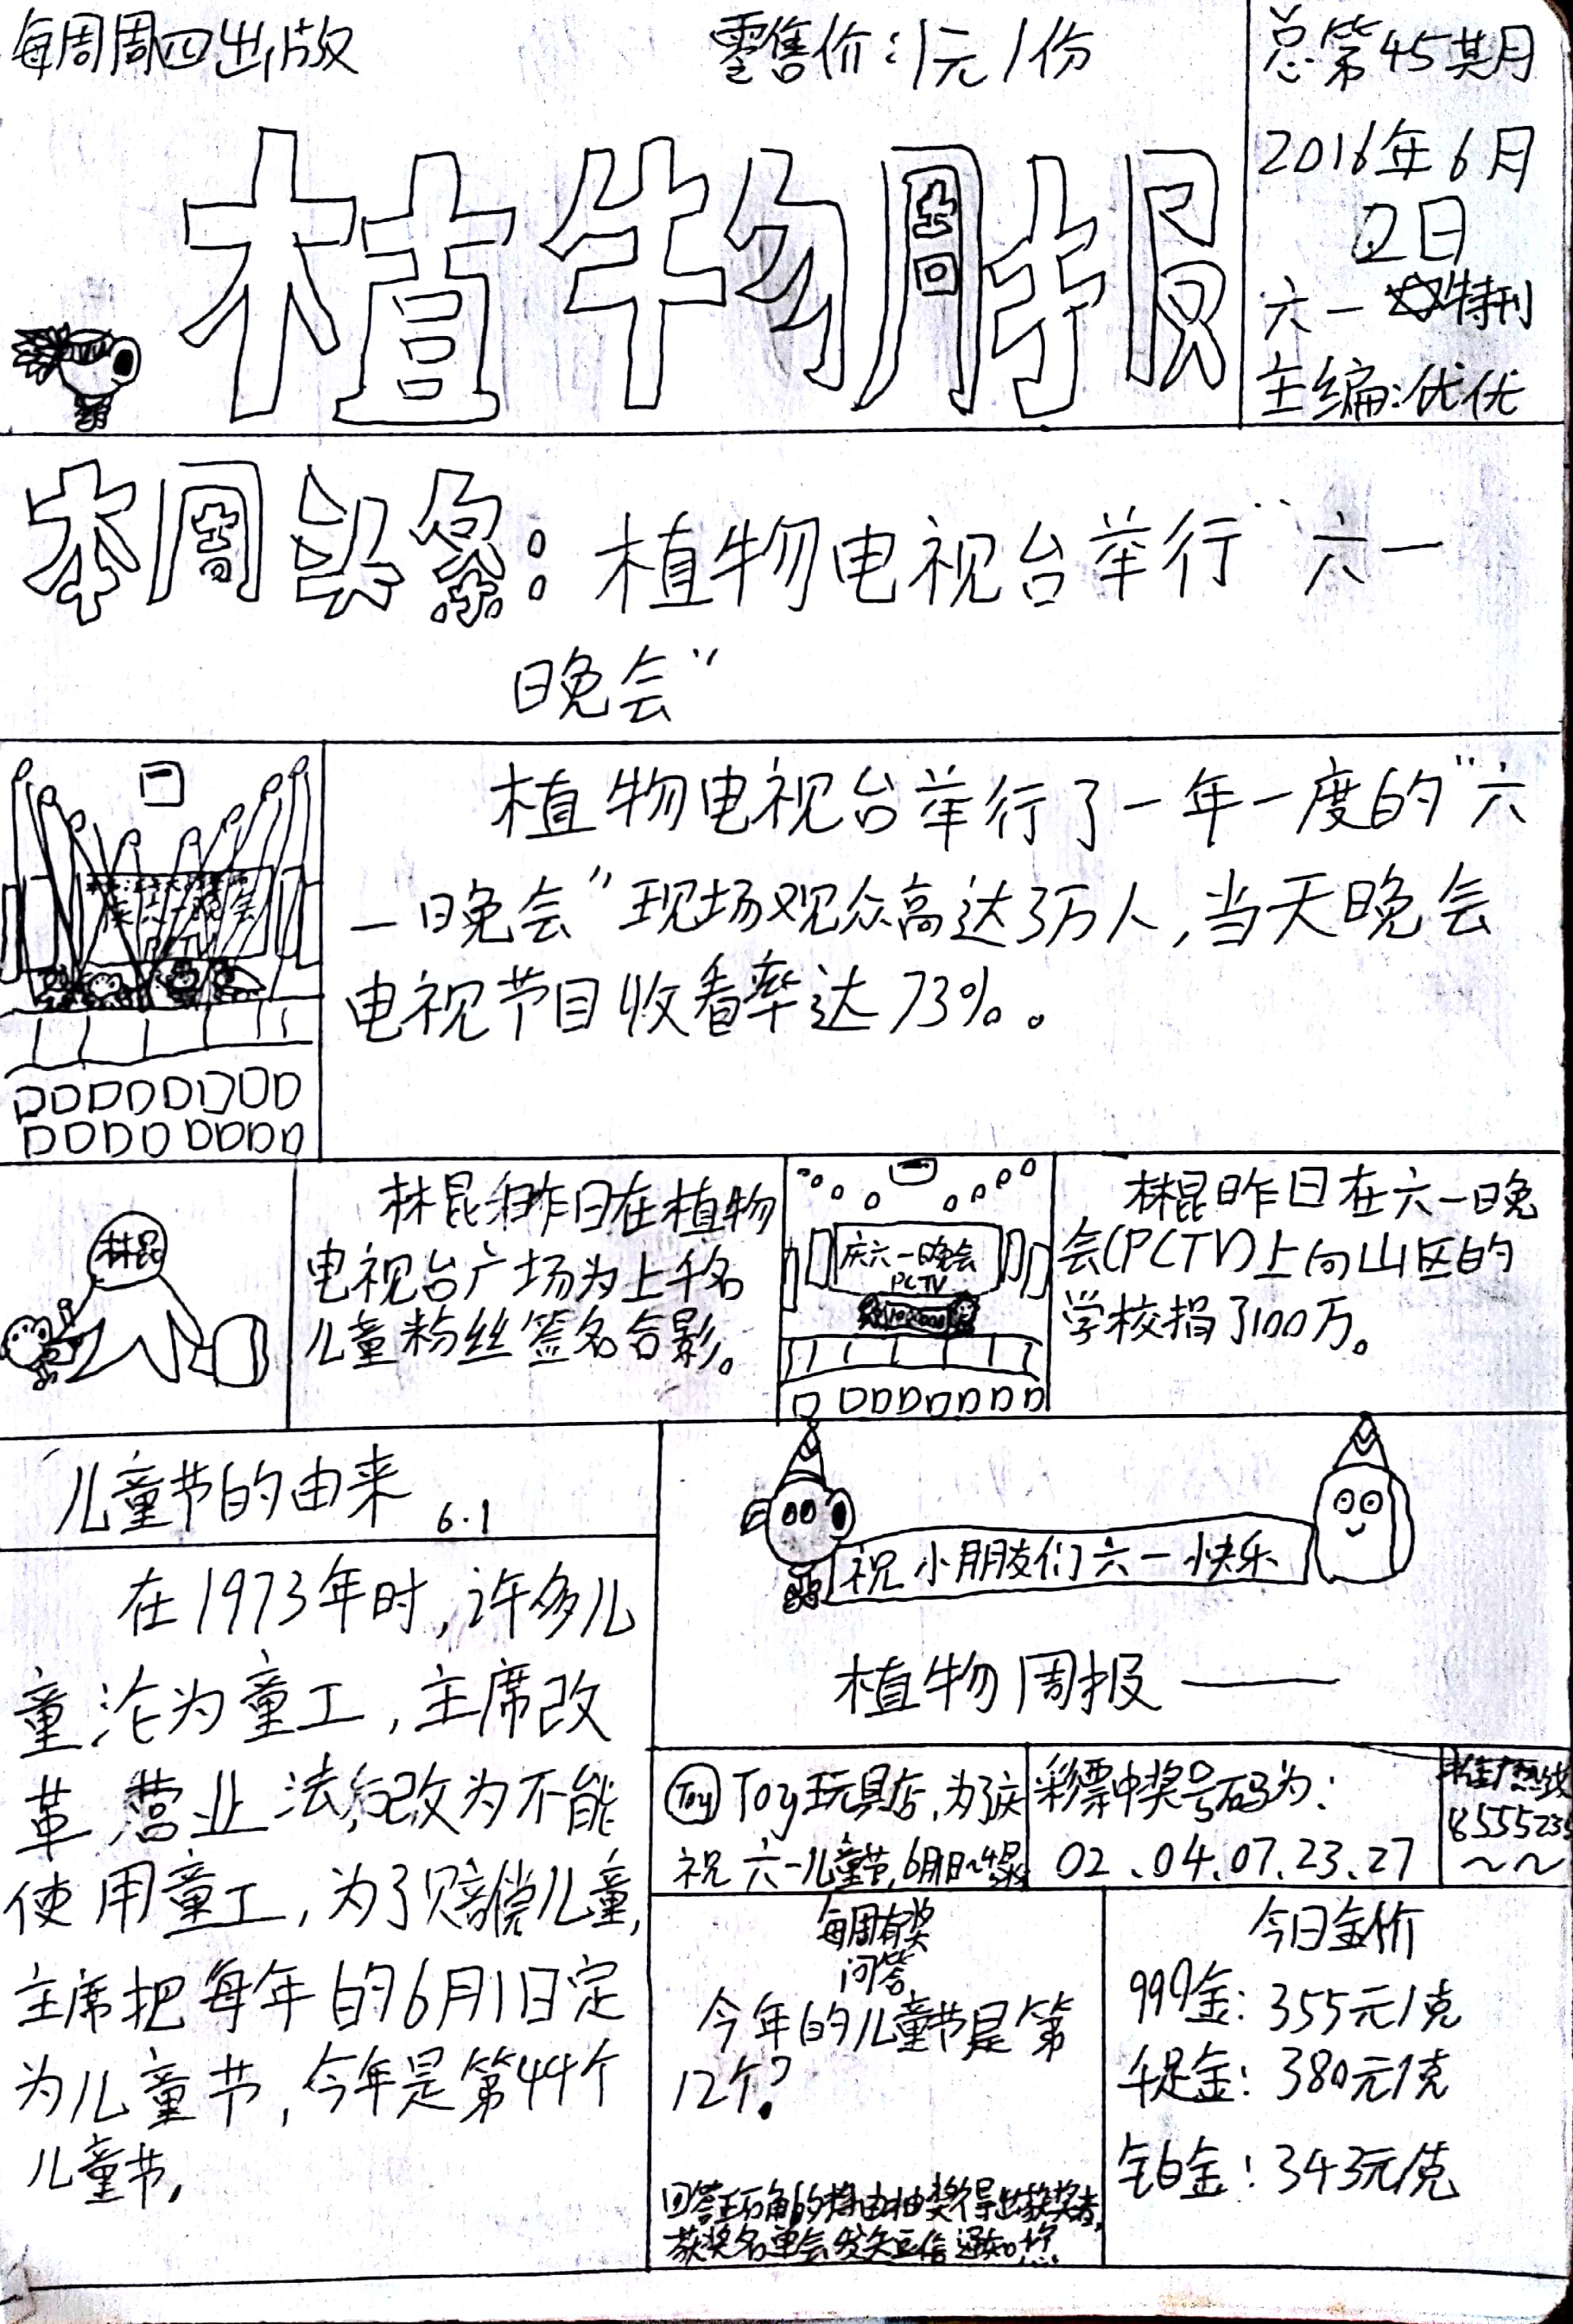 每周周四出放
零售价:1元1份
总第45期
2016年6月
2日
六一特刊
主编:优优
植物周报
本周头条:植物电视台举行“六一
晚会”
植物电视台举行了一年一度的“六
一晚会”现场观众高达3万人,当天晚会
电视节目收看率达73%。
林昆
林昆昨日在植物
电视台广场为上千名
儿童粉丝签名合影。
庆六一晚会
PCTV
林昆昨日在六一晚
会(PCTV)上向山区的
学校捐了100万。
儿童节的由来 6.1
在1973年时,许多儿
童沦为童工,主席改
革营业法后改为不能
使用童工,为了赔偿儿童,
主席把每年的6月1日定
为儿童节,今年是第44个
儿童节,
祝小朋友们六一快乐
植物周报——
Toy Toy玩具店,为了庆
祝六一儿童节,6月1日~4日
彩票中奖号码为:
02、04、07、23、27
每周有奖
问答
今年的儿童节是第
12个?
回答正确的将由抽奖得出获奖者,
获奖名单会发短信通知您
今日金价
999金:355元/克
千足金:380元/克
铂金:343元/克